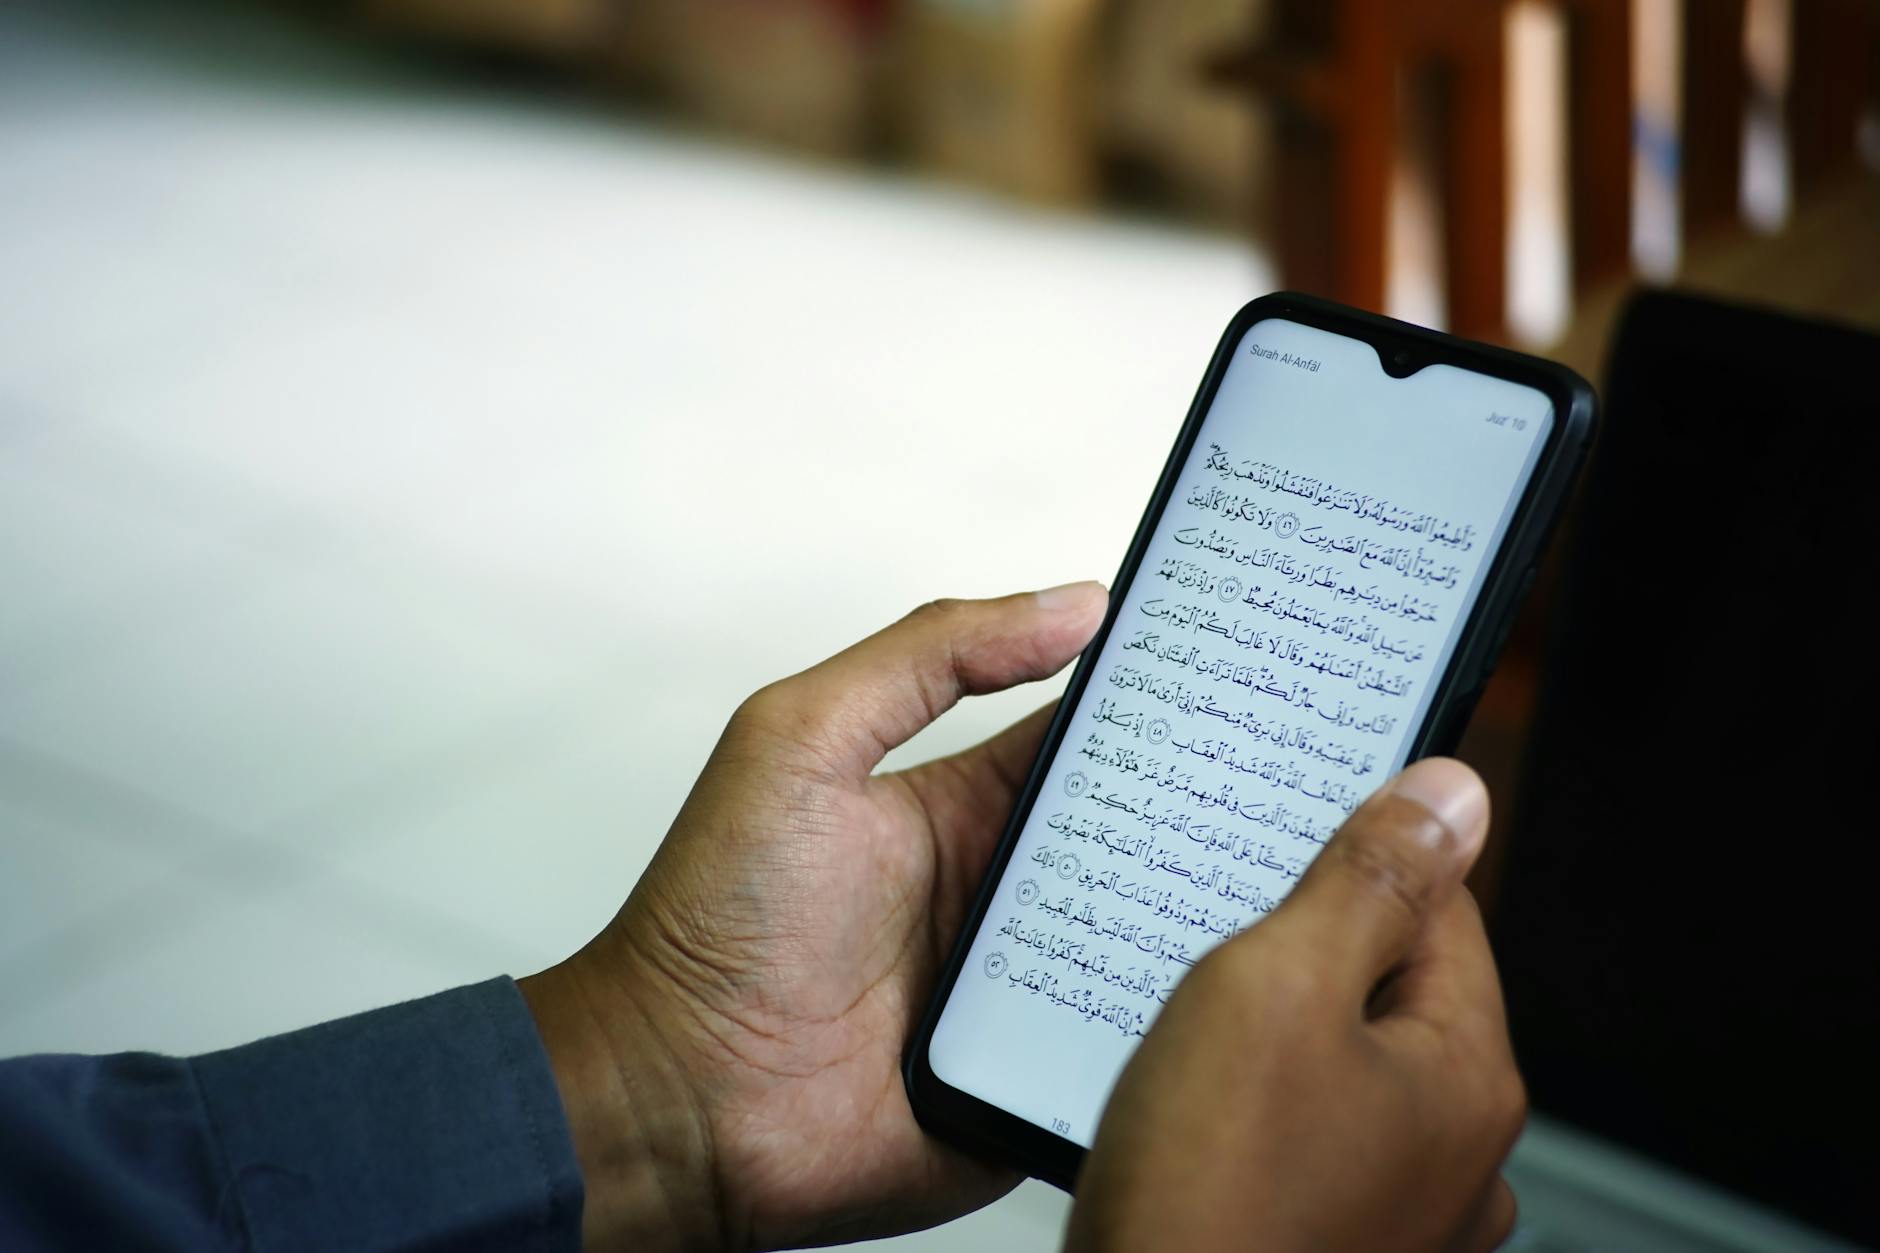 Surah Al-Anfāl
Juz' 10
وَأَطِيعُوا۟ ٱللَّهَ وَرَسُولَهُۥ وَلَا تَنَـٰزَعُوا۟ فَتَفْشَلُوا۟ وَتَذْهَبَ رِيحُكُمْ ۖ
وَٱصْبِرُوٓا۟ ۚ إِنَّ ٱللَّهَ مَعَ ٱلصَّـٰبِرِينَ ٤٦ وَلَا تَكُونُوا۟ كَٱلَّذِينَ
خَرَجُوا۟ مِن دِيَـٰرِهِم بَطَرًا وَرِئَآءَ ٱلنَّاسِ وَيَصُدُّونَ
عَن سَبِيلِ ٱللَّهِ ۚ وَٱللَّهُ بِمَا يَعْمَلُونَ مُحِيطٌ ٤٧ وَإِذْ زَيَّنَ لَهُمُ
ٱلشَّيْطَـٰنُ أَعْمَـٰلَهُمْ وَقَالَ لَا غَالِبَ لَكُمُ ٱلْيَوْمَ مِنَ
ٱلنَّاسِ وَإِنِّى جَارٌ لَّكُمْ ۖ فَلَمَّا تَرَآءَتِ ٱلْفِئَتَانِ نَكَصَ
عَلَىٰ عَقِبَيْهِ وَقَالَ إِنِّى بَرِىٓءٌ مِّنكُمْ إِنِّىٓ أَرَىٰ مَا لَا تَرَوْنَ
إِنِّىٓ أَخَافُ ٱللَّهَ ۚ وَٱللَّهُ شَدِيدُ ٱلْعِقَابِ ٤٨ إِذْ يَقُولُ
وَٱلَّذِينَ فِى قُلُوبِهِم مَّرَضٌ غَرَّ هَـٰٓؤُلَآءِ دِينُهُمْ
عَلَى ٱللَّهِ فَإِنَّ ٱللَّهَ عَزِيزٌ حَكِيمٌ ٤٩
إِذْ يَتَوَفَّى ٱلَّذِينَ كَفَرُوا۟ ۙ ٱلْمَلَـٰٓئِكَةُ يَضْرِبُونَ
وَذُوقُوا۟ عَذَابَ ٱلْحَرِيقِ ٥٠ ذَٰلِكَ
وَأَنَّ ٱللَّهَ لَيْسَ بِظَلَّـٰمٍ لِّلْعَبِيدِ ٥١
وَٱلَّذِينَ مِن قَبْلِهِمْ ۚ كَفَرُوا۟ بِـَٔايَـٰتِ ٱللَّهِ
إِنَّ ٱللَّهَ قَوِىٌّ شَدِيدُ ٱلْعِقَابِ ٥٢
183